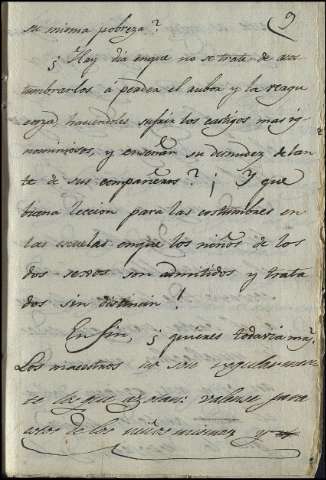 9
su misma pobreza?
¿ Hay dia enque no se trate de acos
tumbrarlos á perder el rubor y la vergu
enza haciendoles sufrir los castigos mas ig
nominiosos, y enseñar su desnudez delan
te de sus compañeros? ¡ Y que
buena leccion para las costumbres en
las escuelas enque los niños de los
dos sexos son admitidos y trata
dos sin distincion!
En fin, ¿ quieres todavia mas,
Los maestros no son regularmen
te los que azotan: valense para
esto de los niños mismos y